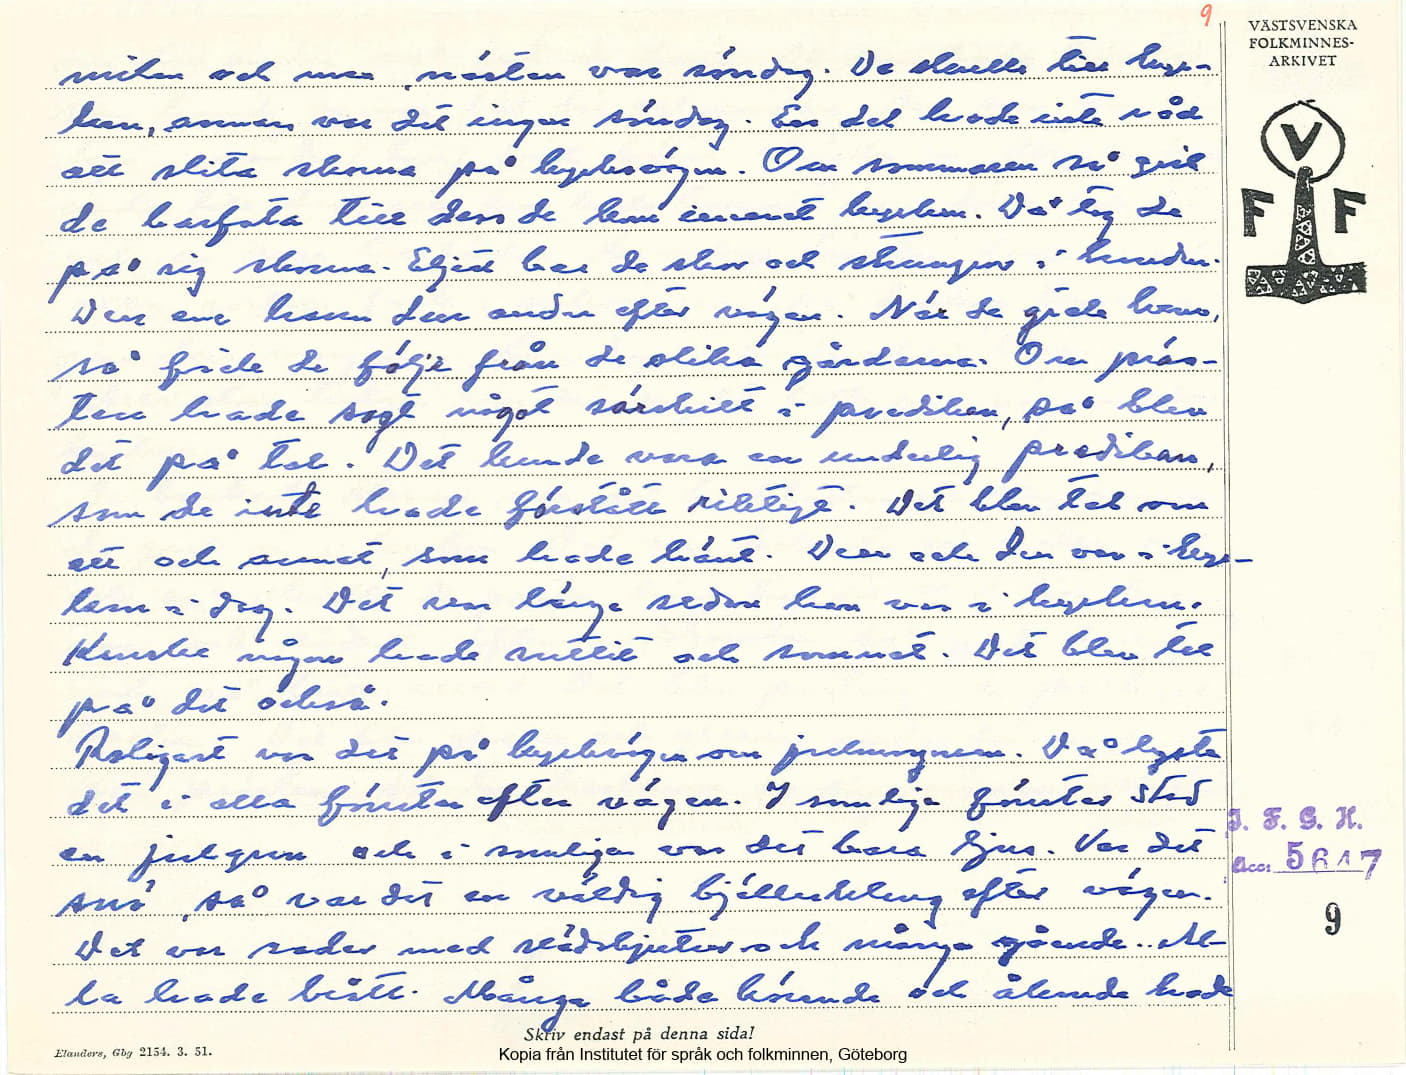 9
VÄSTSVENSKA
FOLKMINNES-
ARKIVET
V
F F
milen och man nästan var söndag. De skulle till kyr-
kan, annars var det ingen söndag. En del hade inte råd
att slita skorna på kyrkvägen. Om sommaren så gick
de barfota till dess de kom kyrkan. Då tog de
på sig skorna. Eljest bar de skor och strumpor i handen.
Den ene hann den andre efter vägen. När de gick hem,
så fick de följe från de olika gårdarna. Om präs-
ten hade sagt något särskilt i predikan, så blev
det på tal. Det kunde vara en underlig predikan,
som de inte hade förstått riktigt. Det blev tal om
ett och annat, som hade hänt. Den och den var i kyr-
kan i dag. Det var länge sedan han var i kyrkan.
Kanske någon hade suttit och somnat. Det blev tal
på det också.
Roligast var det på kyrkvägen om julmorgonen. Då lyste
det i alla fönster efter vägen. I somliga fönster stod
en julgran och i somliga var det bara ljus. Var det
snö, så var det en väldig bjällerklang efter vägen.
Det var rader med slädskjutsar och många gående. Al-
la hade brått. Många både körande och åkande hade
I. F. G. H.
Acc: 5647
9
Skriv endast på denna sida!
Elanders, Gbg 2154. 3. 51.
Kopia från Institutet för språk och folkminnen, Göteborg